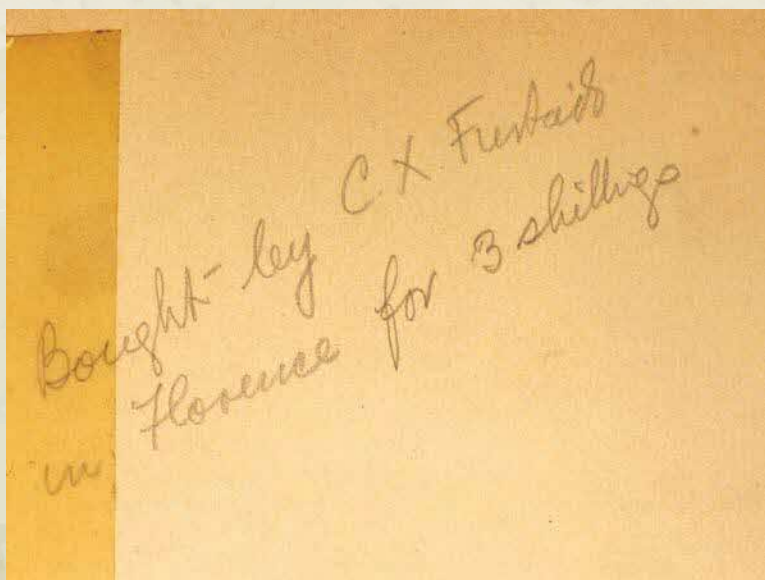 Bought by C X Furtado
in Florence for 3 shillings